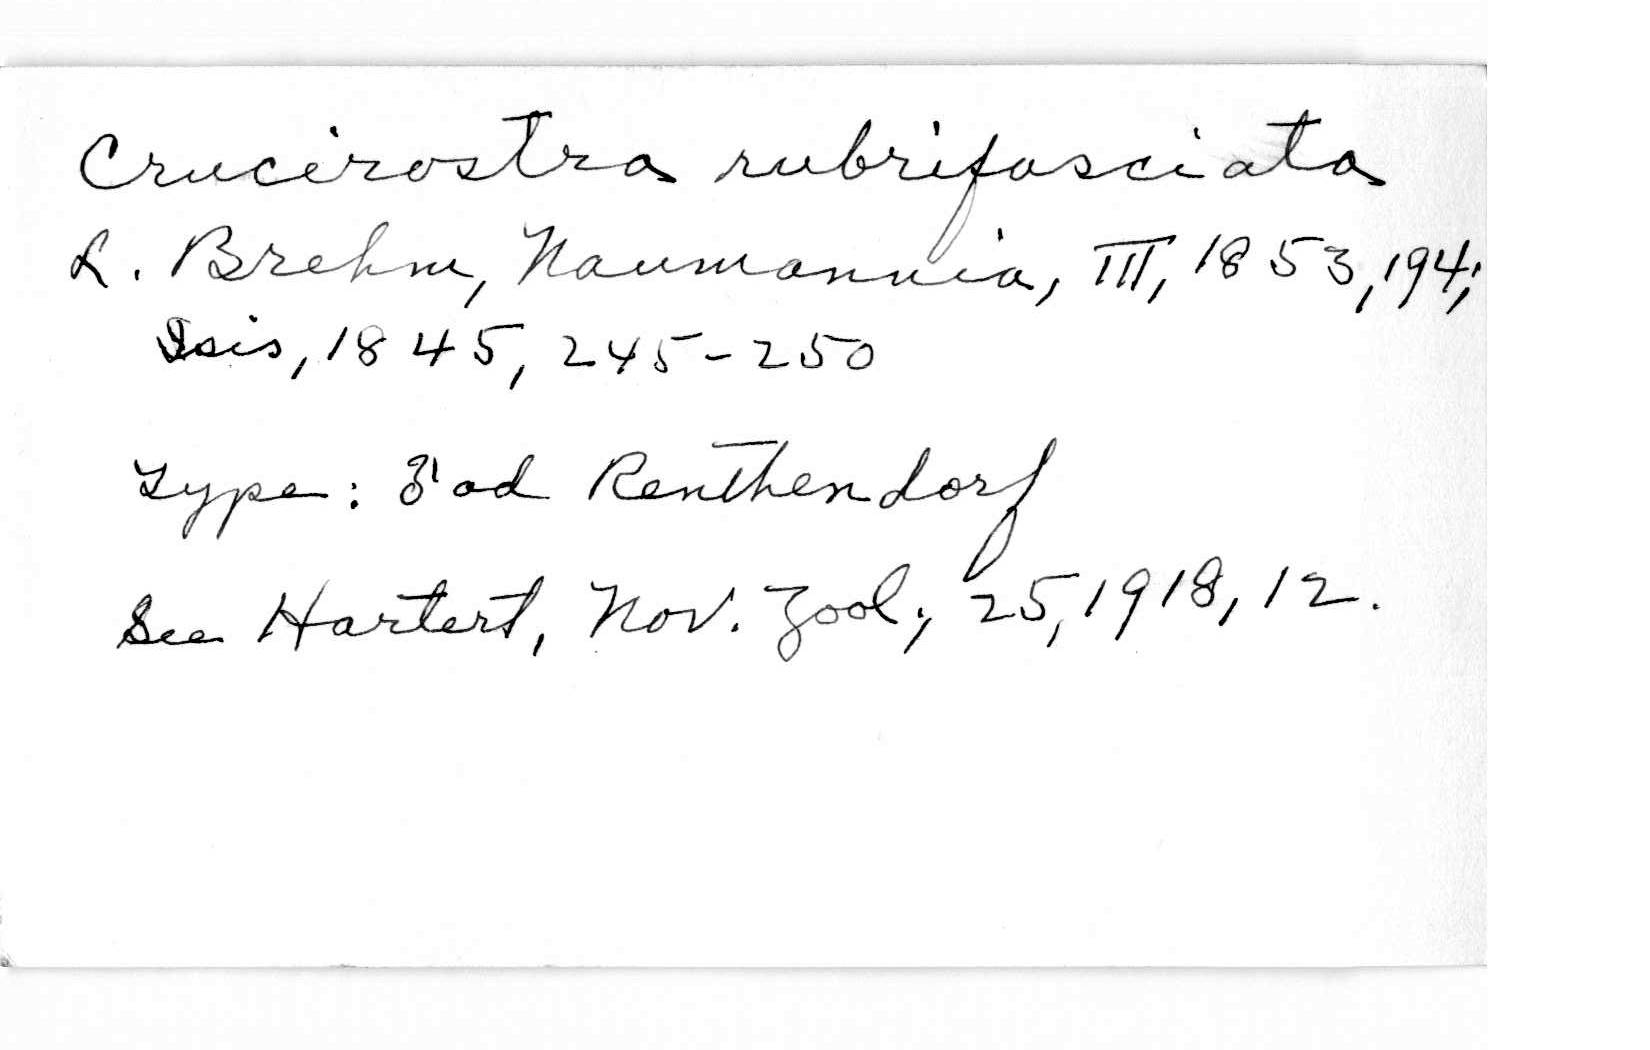 Crucirostra rubrifasciata
L. Brehm, Naumannia, III, 1853, 194;
Isis, 1845, 245-250
Type: ♂ ad Renthendorf
See Hartert, Nov. Zool., 25, 1918, 12.